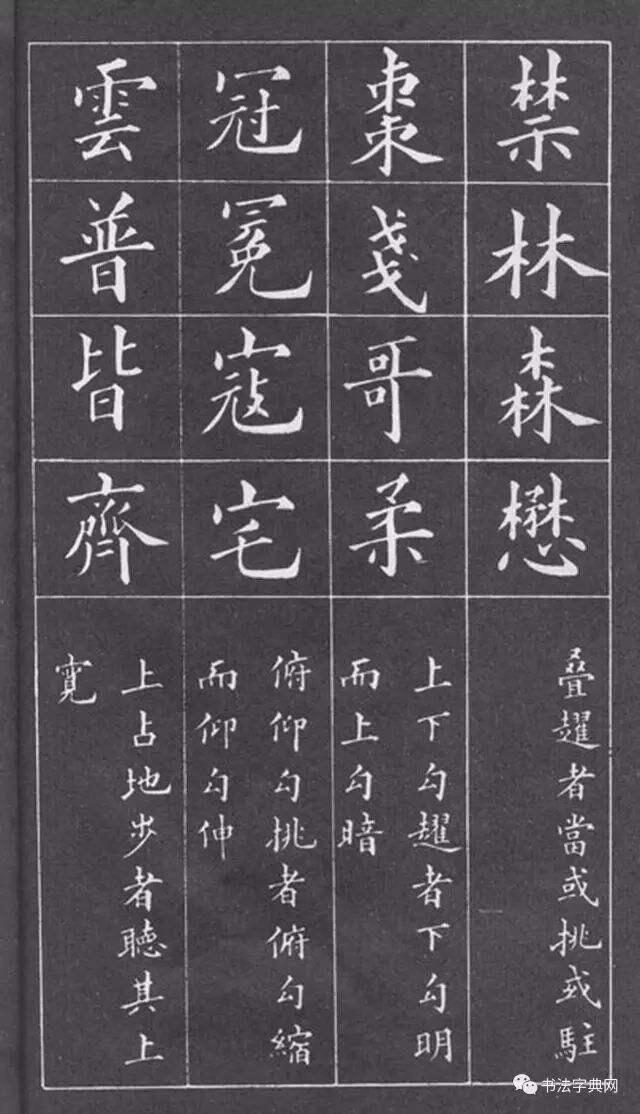 禁林森懋
叠趯者當或挑或駐
棗戔哥柔
上下勾趯者下勾明
而上勾暗
冠冕寇宅
俯仰勾挑者俯勾縮
而仰勾伸
雲普皆齊
上占地步者聽其上
寬
书法字典网